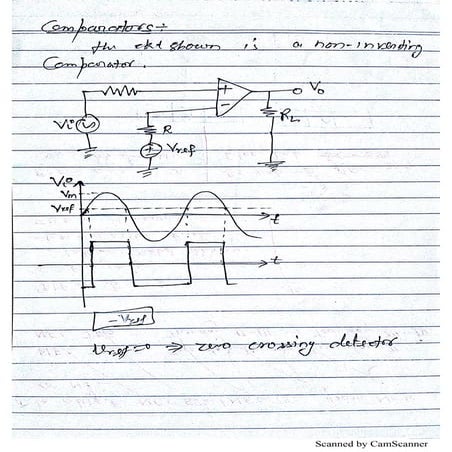 Comparators :-
the ckt shown is a non-inverting
Comparator.
Vi
+
-
Vo
RL
R
Vref
Vi
Vm
Vref
t
t
-Vref
Vref=0 ⇒ zero crossing detector
Scanned by CamScanner